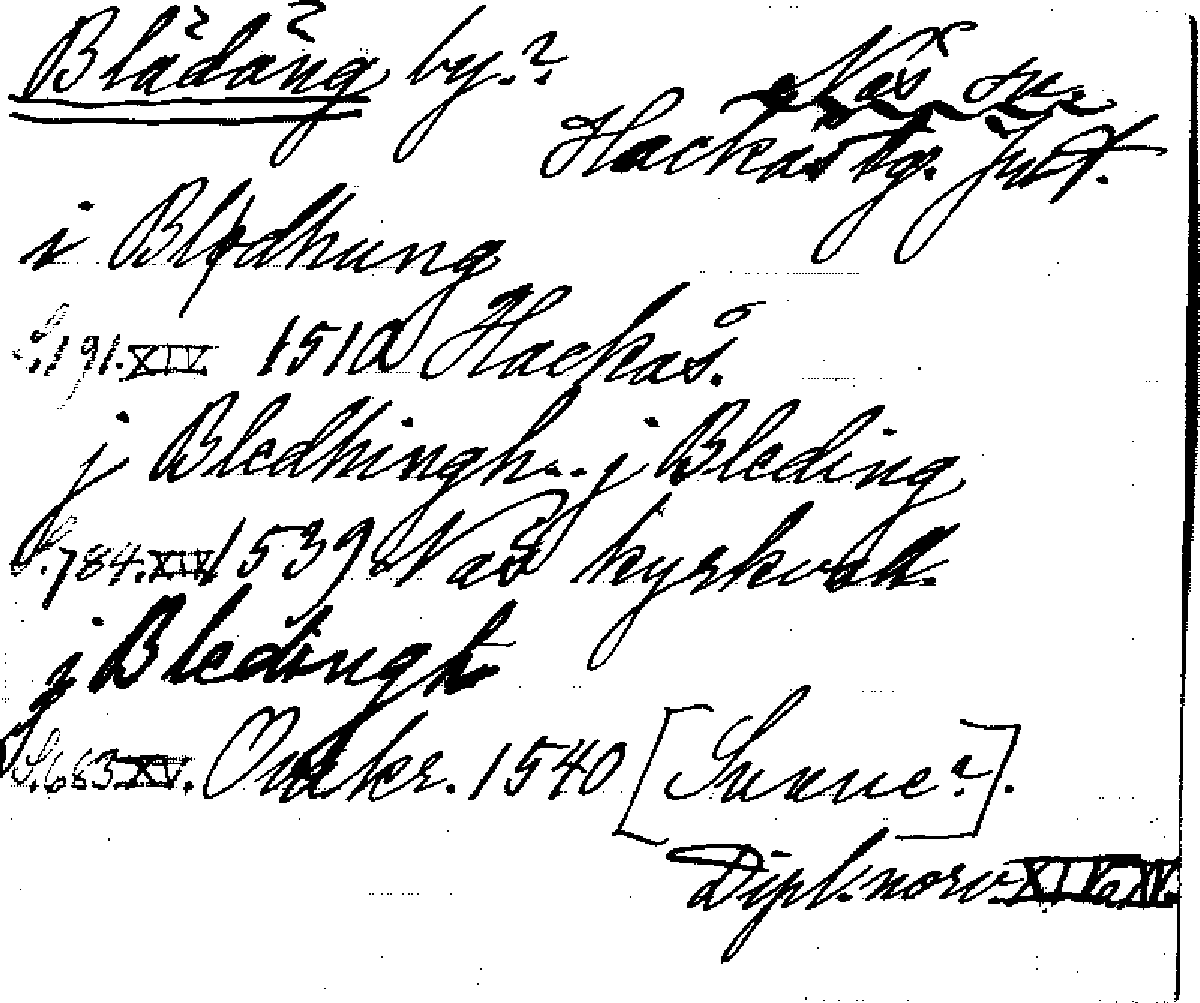 Blådäng by.?
Näs sn.
Hackås tg. Jmtl.
i Blødhung
S. 191. XIV. 1510 Hackås.
j Bledhingh... j Bleding
S. 784. XIV 1539 Näs kyrka
j Bledingh
S. 683 XV. Omkr. 1540 [Sunne?].
Dipl. norv. XIV o XV.